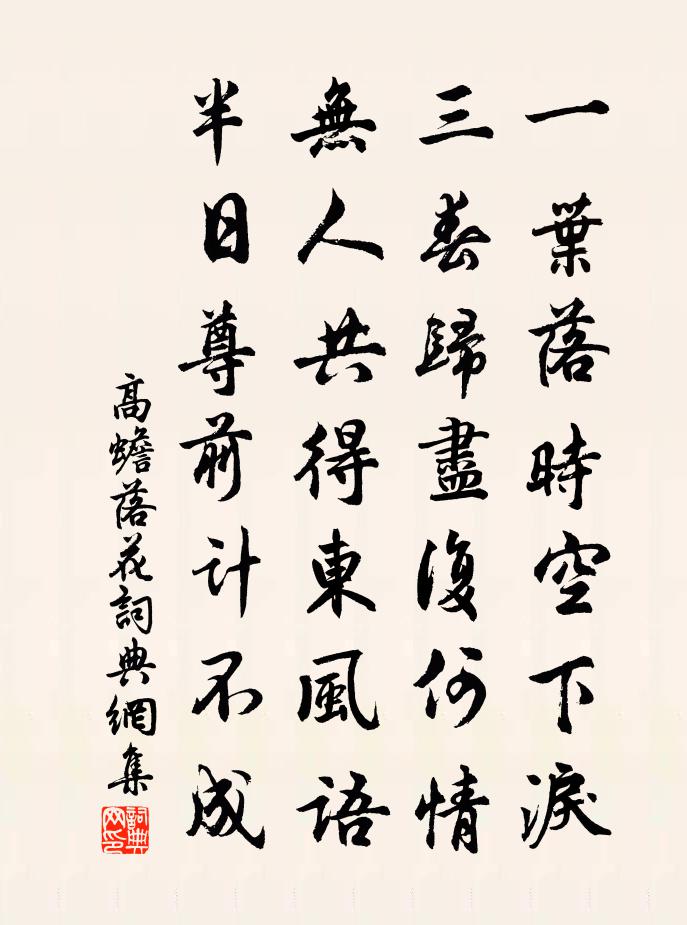 一葉落時空下淚
三春歸盡復何情
無人共得東風語
半日尊前計不成
高蟾落花詞典網集
詞典網印